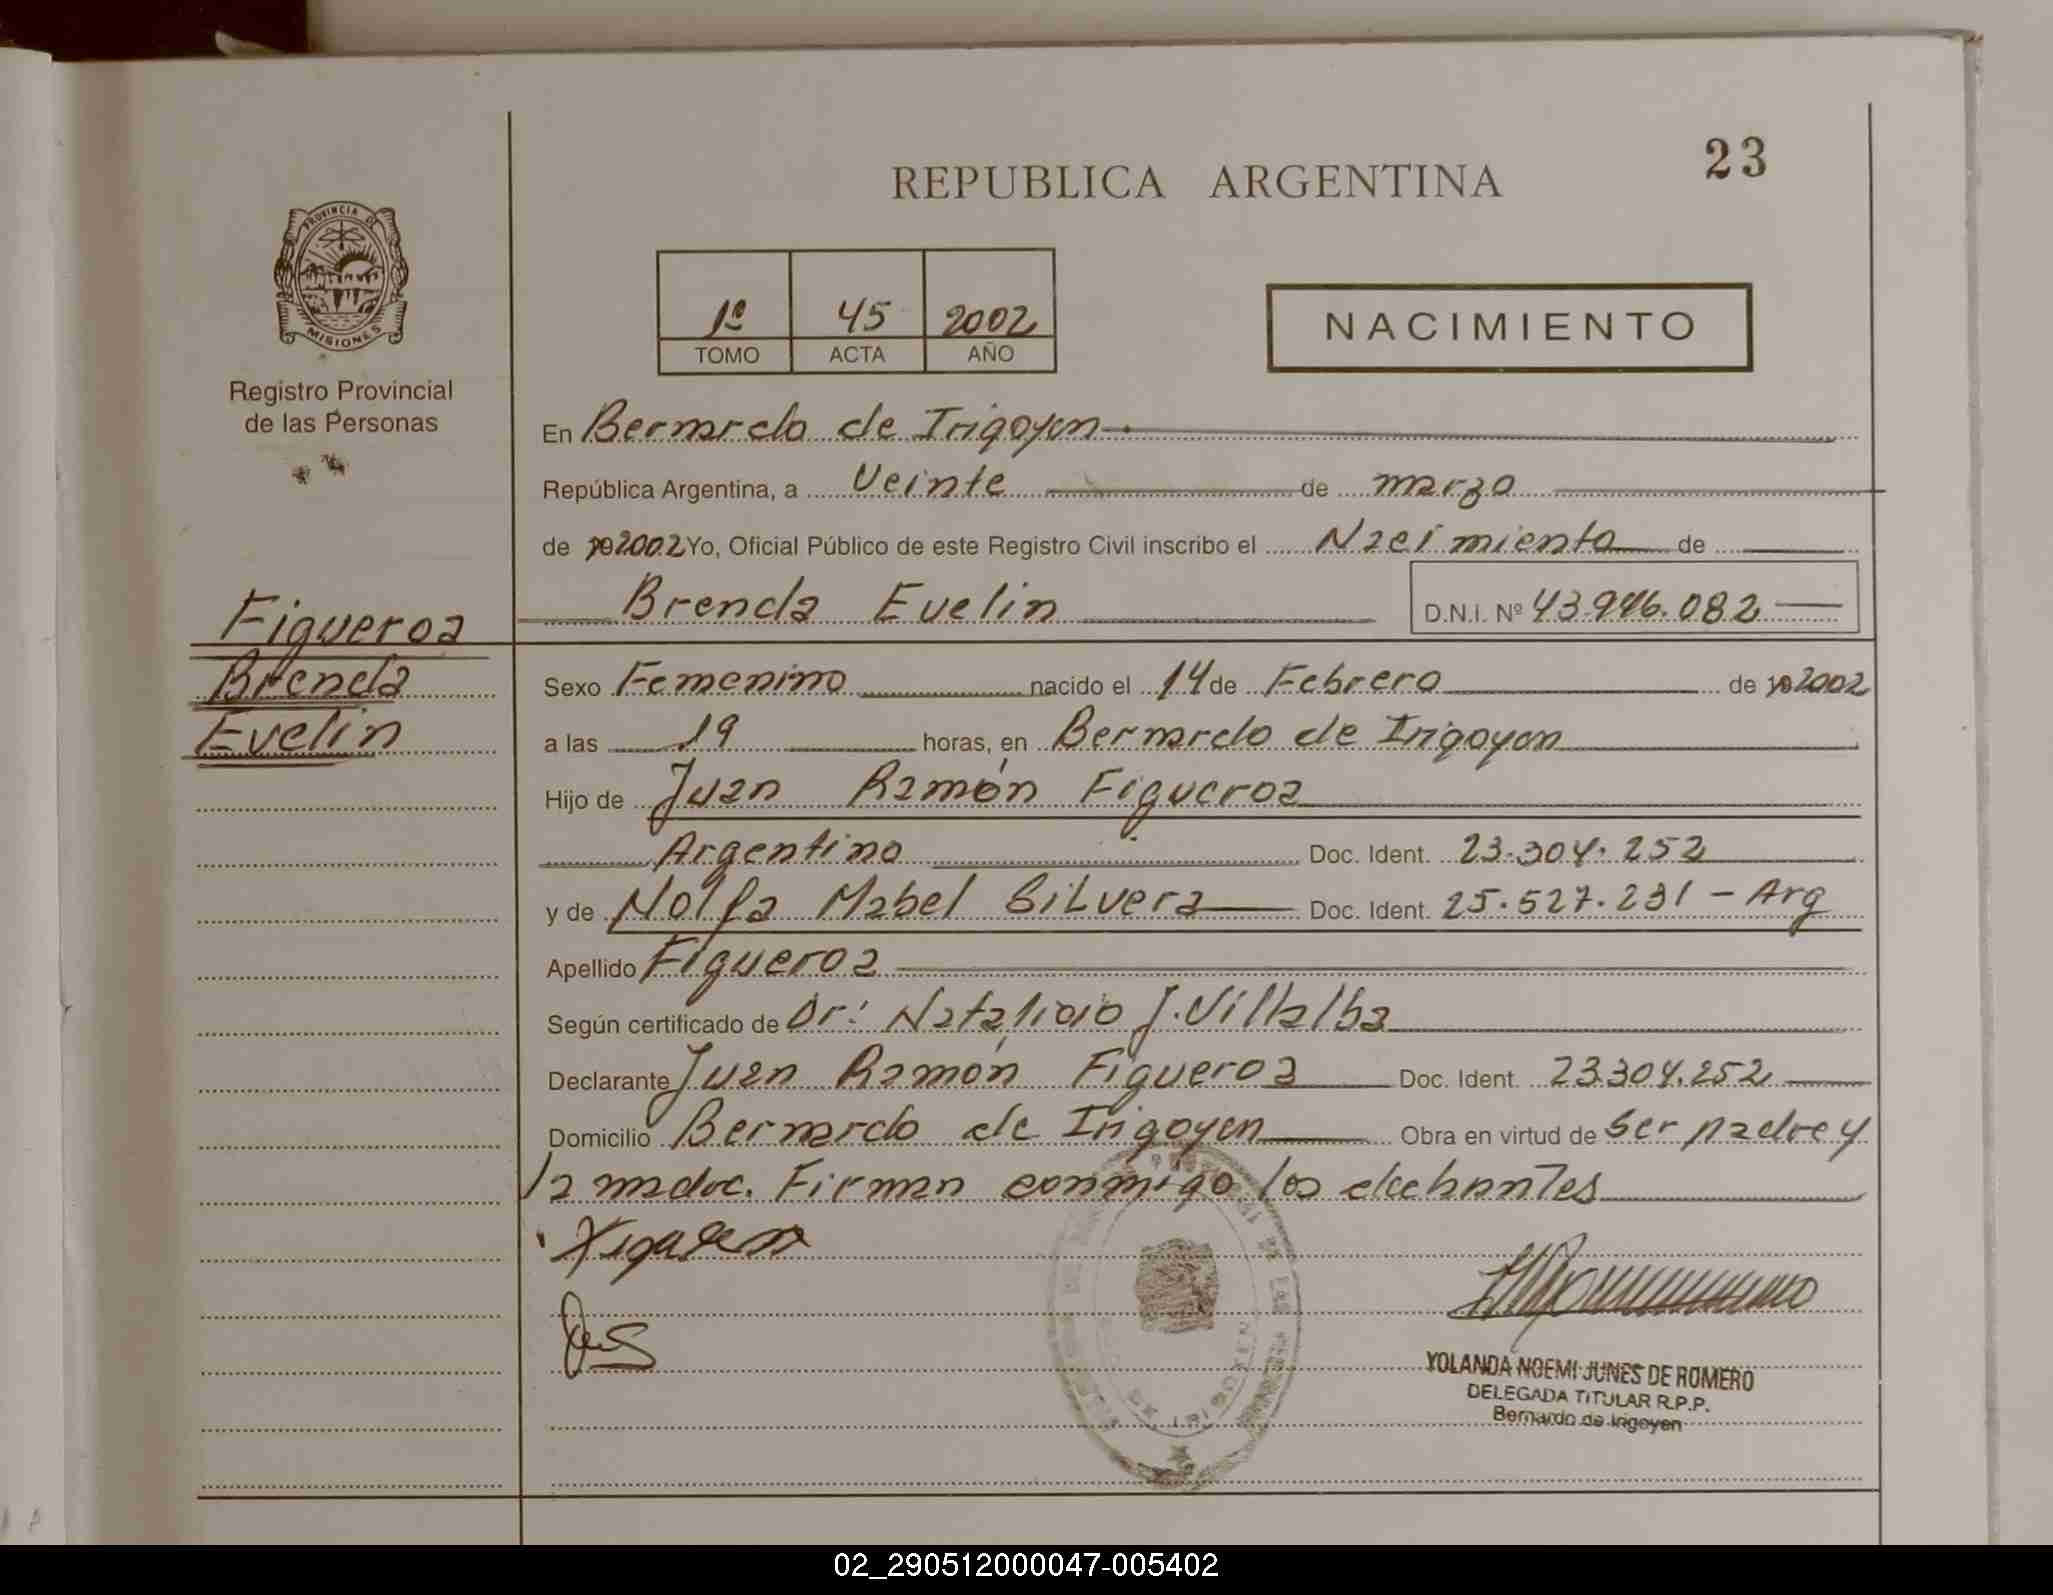 23
REPUBLICA ARGENTINA
PROVINCIA DE
MISIONES
Registro Provincial
de las Personas
1º 45 2002
TOMO ACTA AÑO
NACIMIENTO
En Bernardo de Irigoyen
República Argentina, a Veinte de marzo
de 2002 Yo, Oficial Público de este Registro Civil inscribo el Nacimiento de
Brenda Evelin D.N.I. Nº 43.946.082
Figueroa
Brenda
Evelin
Sexo Femenino nacido el 14 de Febrero de 2002
a las 19 horas, en Bernardo de Irigoyen
Hijo de Juan Ramón Figueroa
Argentino Doc. Ident. 23.304.252
y de Nolfa Mabel Silvera Doc. Ident. 25.527.231 - Arg
Apellido Figueroa
Según certificado de Dr: Natalicio J. Villalba
Declarante Juan Ramón Figueroa Doc. Ident. 23.304.252
Domicilio Bernardo de Irigoyen Obra en virtud de Ser padre y
la madre. Firman conmigo los
YOLANDA NOEMI JUNES DE ROMERO
DELEGADA TITULAR R.P.P.
Bernardo de Irigoyen
02_290512000047-005402